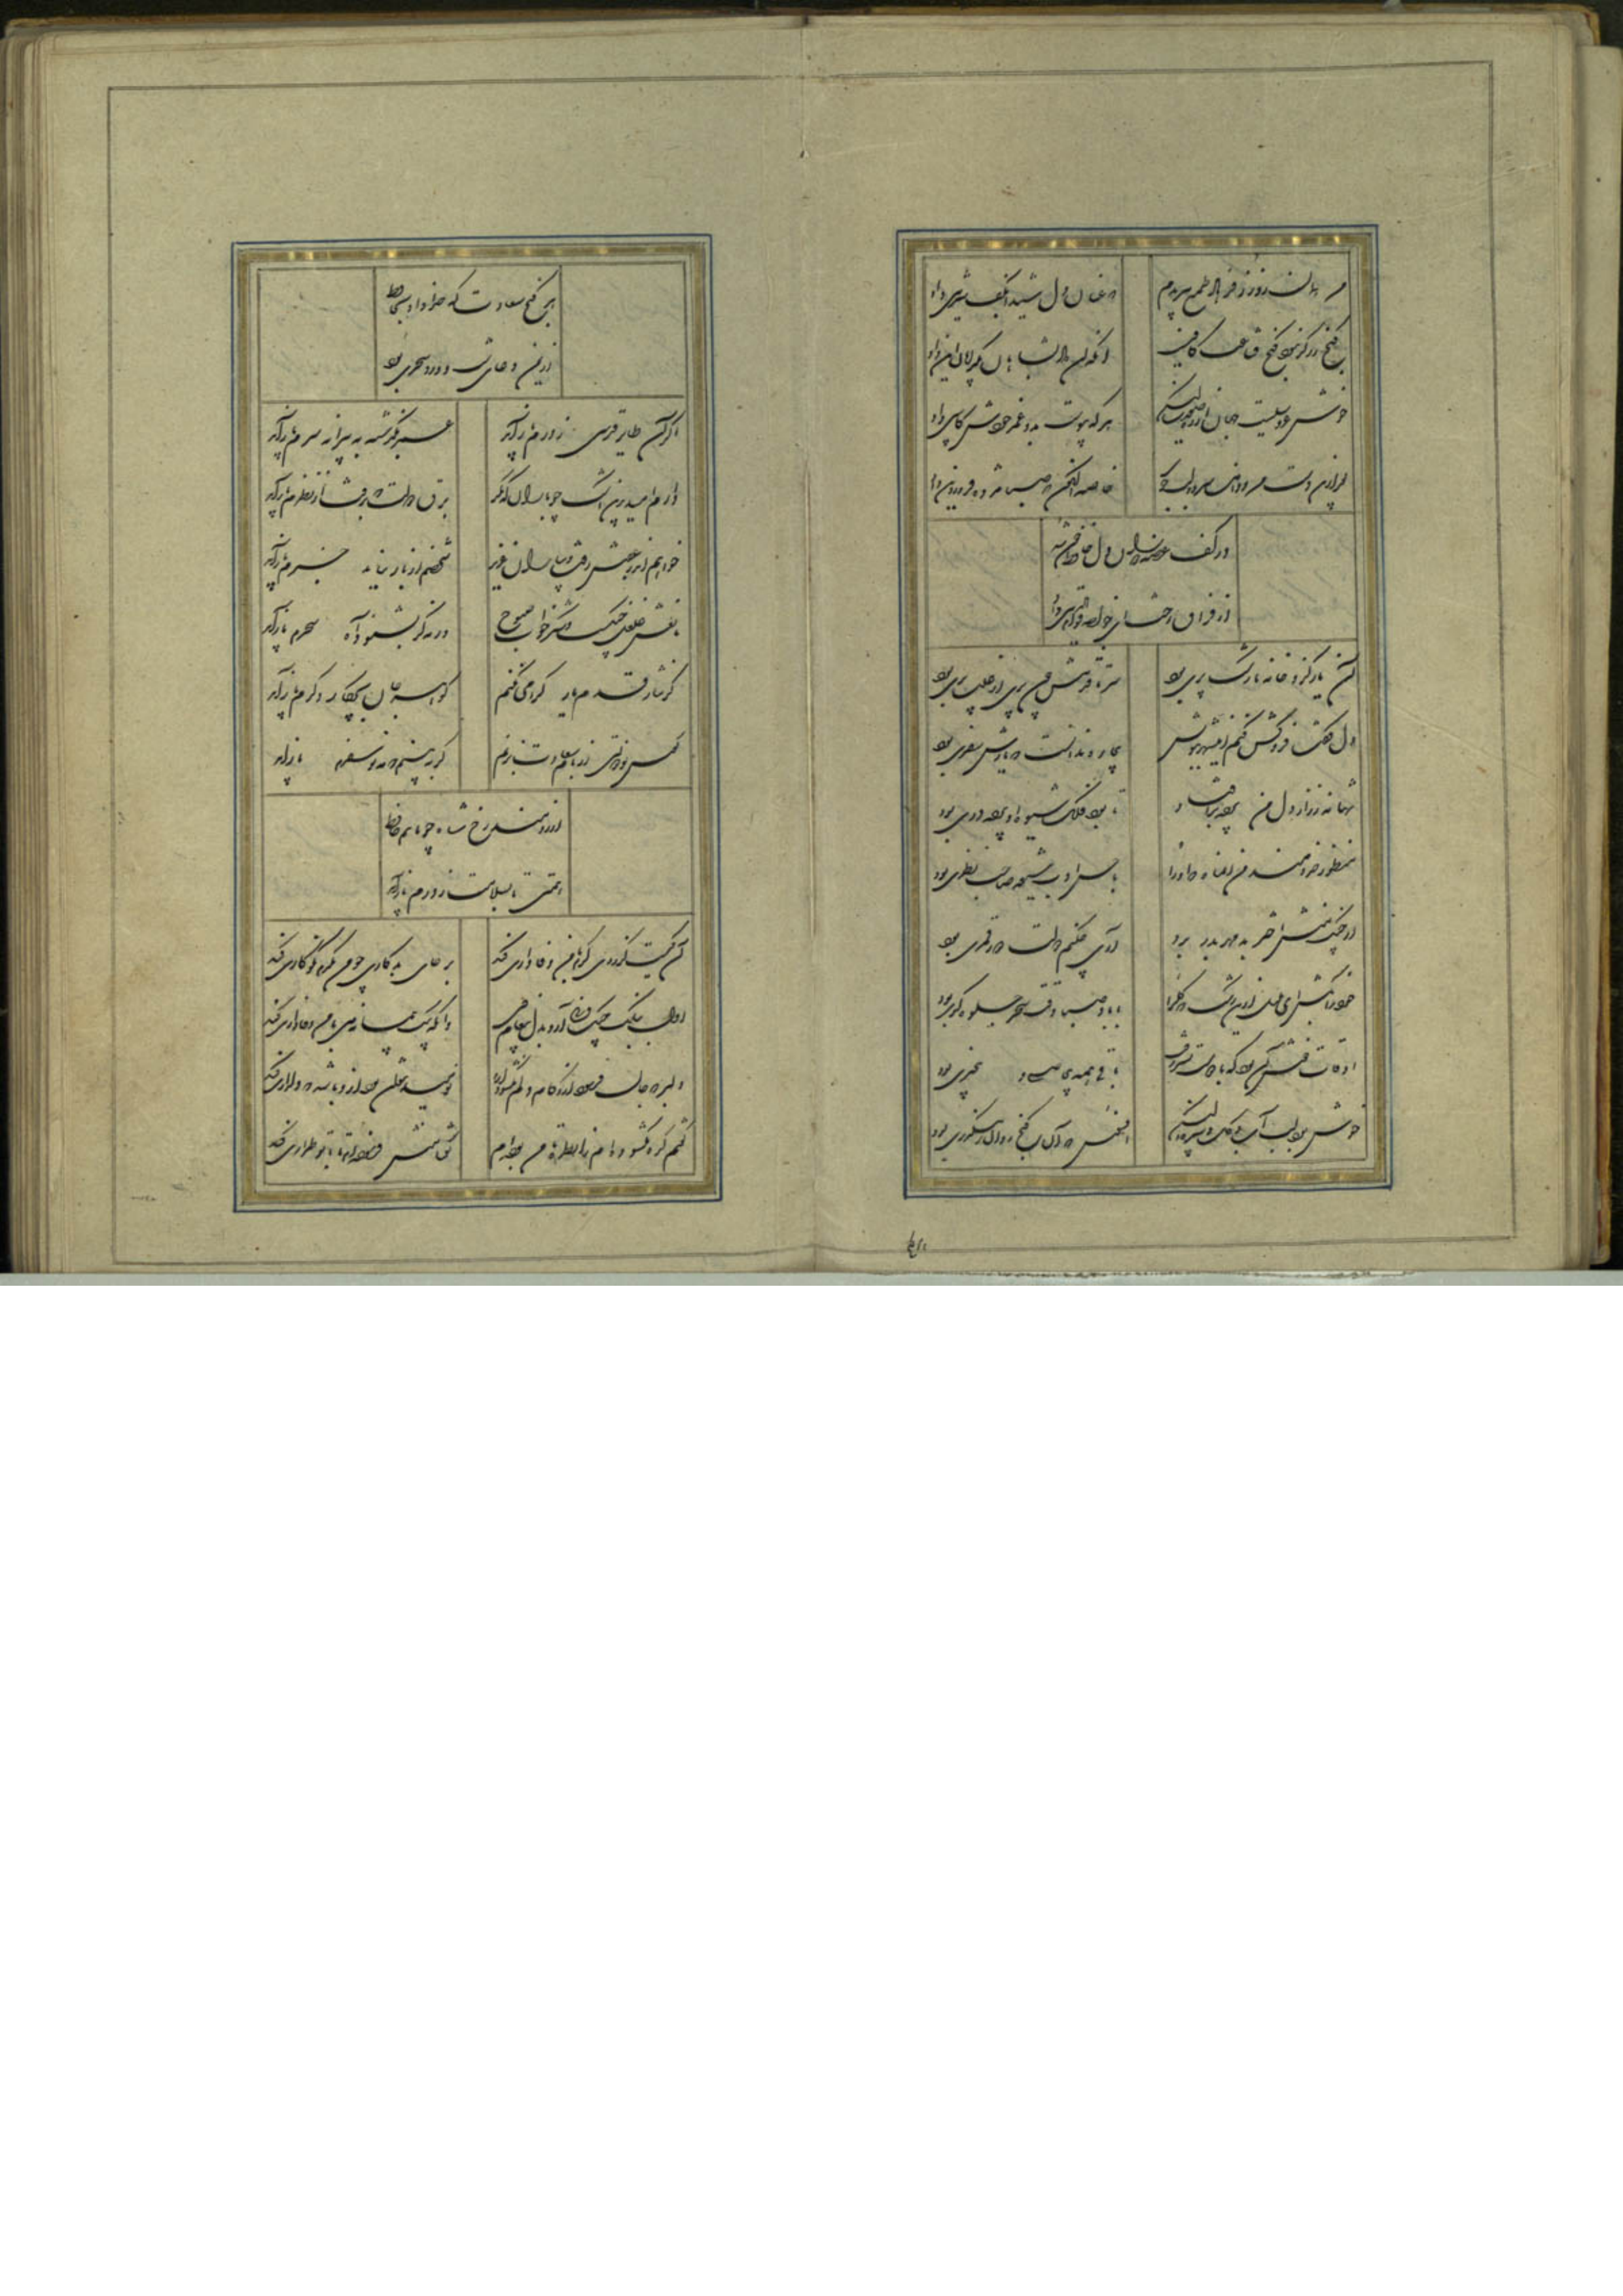 من همان روز ز فرهاد طمع ببریدم که عنان دل شیدا بکف شیرین داد
گنج زر گر نبود کنج قناعت کافیست آنکه آن داد بشاهان بگدایان این داد
خوش عروسیست جهان از ره صورت لیکن هر که پیوست بدو عمر خودش کابین داد
بعد ازین دست من و دامن سرو و لب جوی خاصه اکنون که صبا مژده فروردین داد
در کف غصه دوران دل حافظ خون شد
از فراق رخت ای خواجه قوام الدین داد
آن یار کزو خانه ما رشک پری بود سر تا قدمش چون پری از عیب بری بود
دل گفت فروکش کنم این شهر ببویش بیچاره ندانست که یارش سفری بود
تنها نه ز راز دل من پرده برافتاد تا بود فلک شیوه او پرده دری بود
منظور خردمند من آن ماه که او را با حسن ادب شیوه صاحب نظری بود
از چنگ منش اختر بد مهر بدر برد آری چکنم دولت دور قمری بود
خود را بکش ای بلبل ازین رشک که گل را با باد صبا وقت سحر جلوه گری بود
اوقات خوش آن بود که با دوست بسر رفت باقی همه بی خبری بود
خوش بود لب آب و گل و سبزه ولیکن افسوس که آن گنج روان رهگذری بود
هر گنج سعادت که خدا داد بحافظ
از یمن دعای شب و ورد سحری بود
اگر آن طایر قدسی ز درم باز آید عمر بگذشته به پیرانه سرم باز آید
دارم امید برین اشک چو باران که دگر برق دولت که برفت از نظرم باز آید
خواهم اندر عقبش رفت و بیاران عزیز شخصم ار باز نیاید خبرم باز آید
مانعش غلغل چنگست و شکرخواب صبوح ورنه گر بشنود آه سحرم باز آید
گر نثار قدم یار گرامی نکنم گوهر جان بچه کار دگرم باز آید
کوس نو دولتی از بام سعادت بزنم گر ببینم که مه نو سفرم باز آید
آرزومند رخ شاه چو ماهم حافظ
همتی تا بسلامت ز درم باز آید
آن کیست کز روی کرم با من وفاداری کند بر جای بدکاری چو من یکدم نکوکاری کند
اول ببانگ چنگ و نی آرد بدل پیغام وی وانگه بیک پیمانه می با من وفاداری کند
دلبر که جان فرسود ازو کام دلم نگشود ازو نومید نتوان بود ازو باشد که دلداری کند
گفتم گره نگشوده ام زان طره تا من بوده ام گفتا منش فرموده ام تا با تو طراری کند